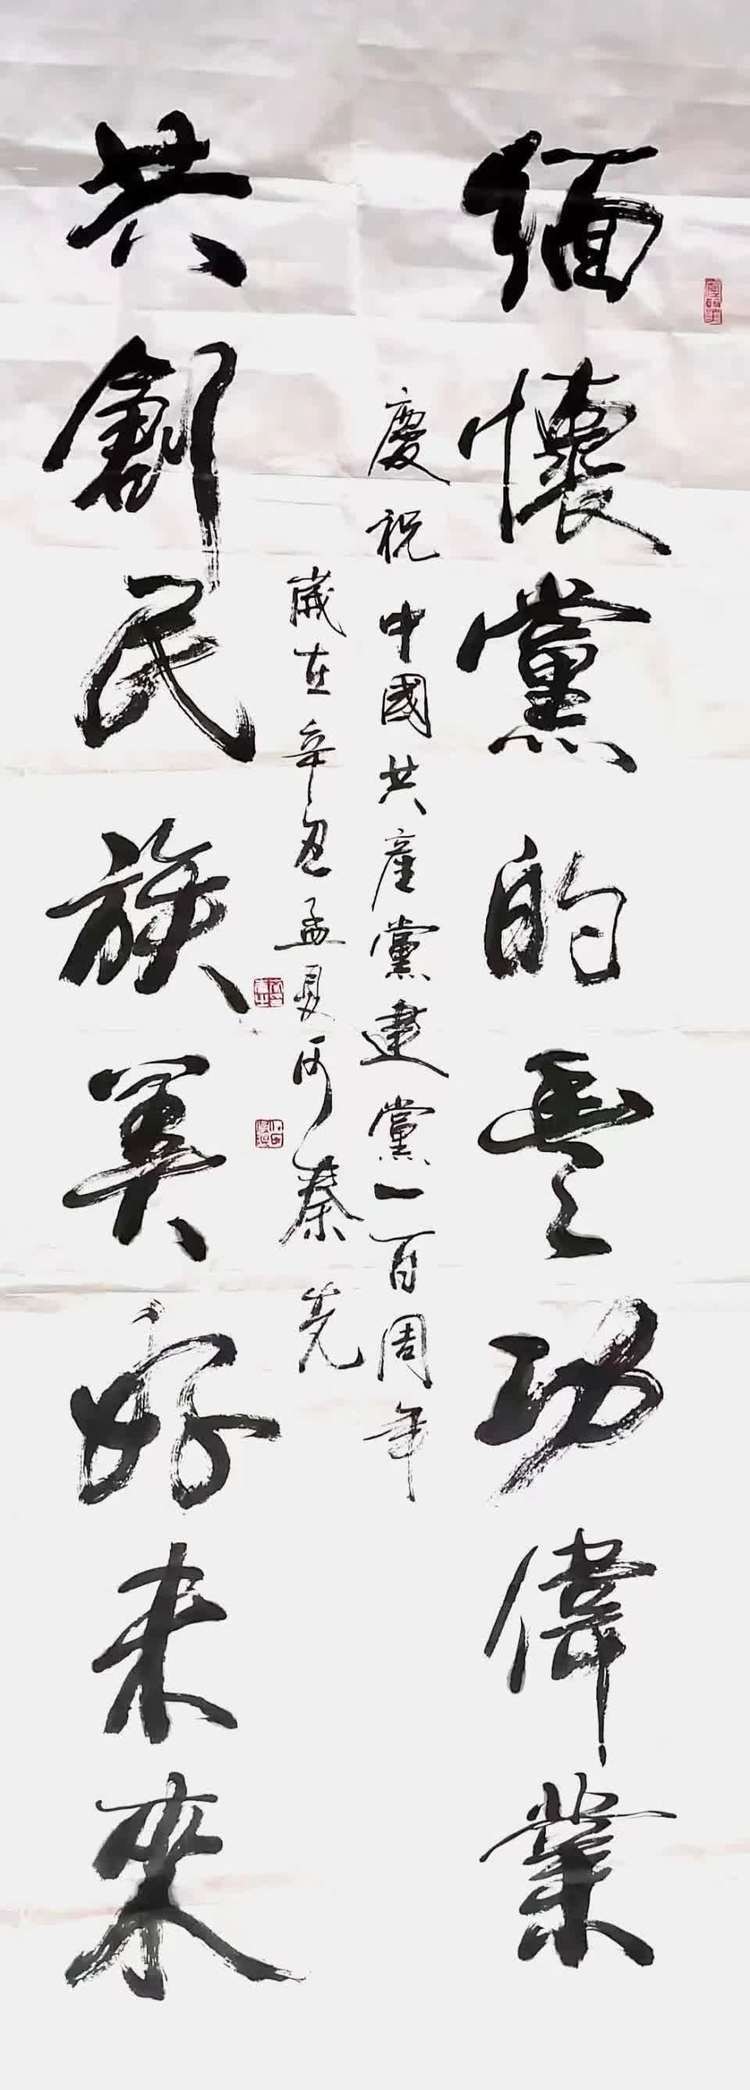 緬懷黨的豐功偉業
慶祝中國共產黨建黨一百周年
歲在辛丑孟夏河秦先
共創民族美好未來